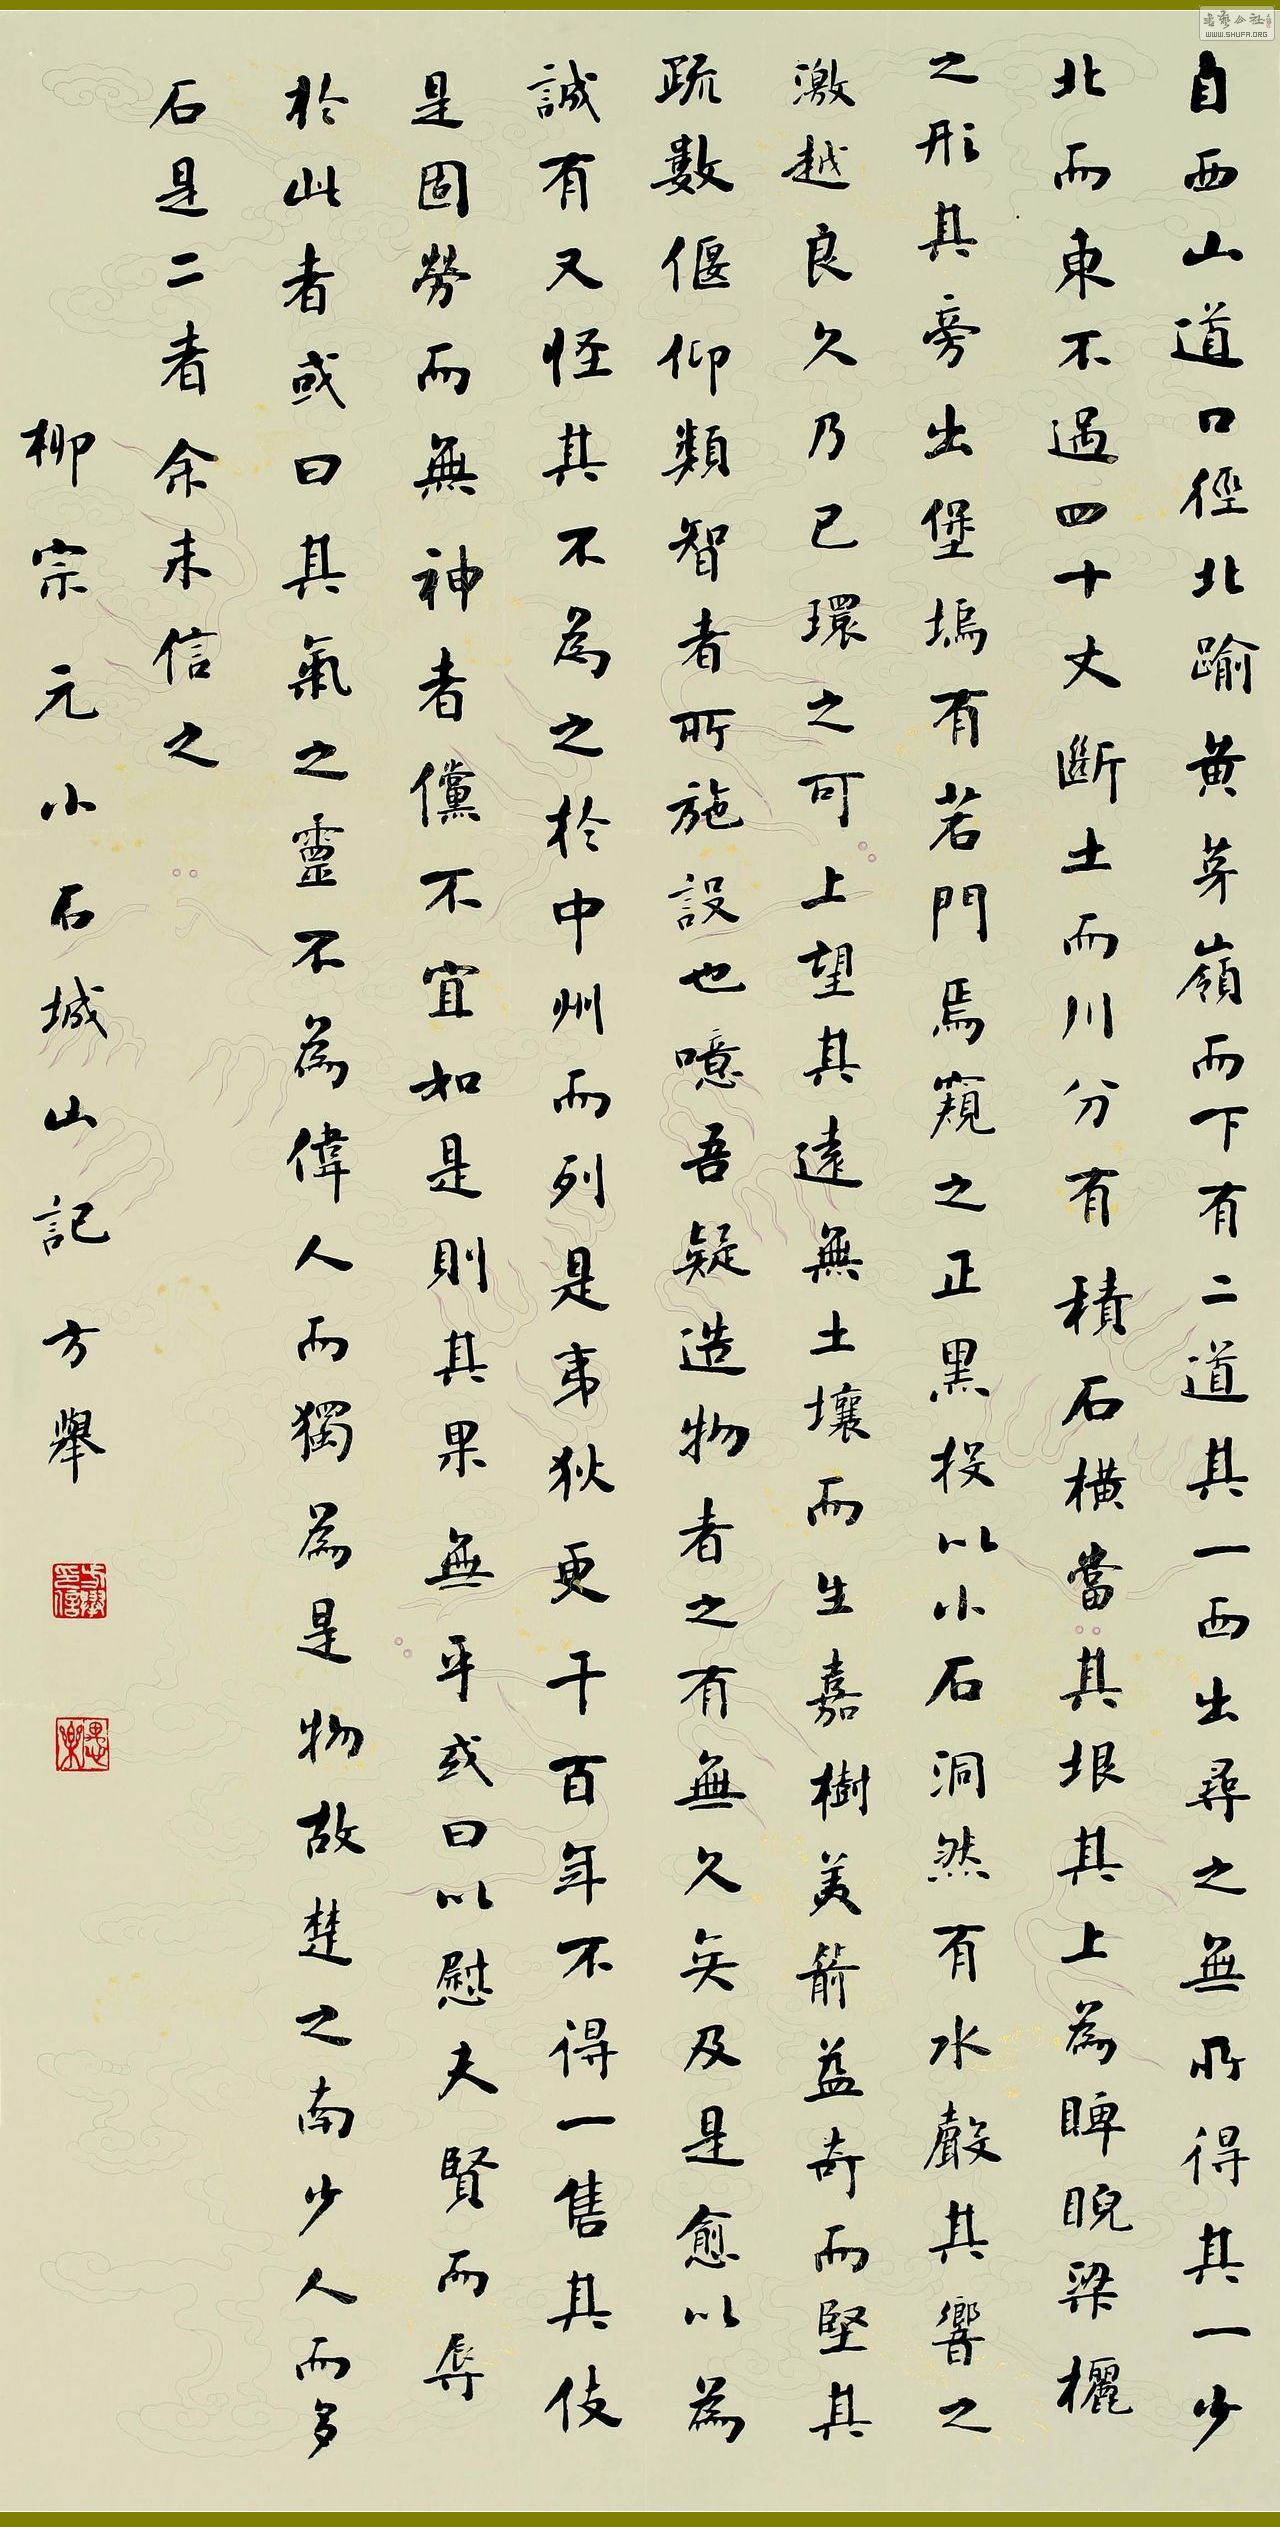 自西山道口徑北踰黄茅嶺而下有二道其一西出尋之無所得其一少
北而東不過四十丈斷土而川分有積石橫當其垠其上為睥睨梁欐
之形其旁出堡塢有若門焉窺之正黑投以小石洞然有水聲其響之
激越良久乃已環之可上望其遠無土壤而生嘉樹美箭益奇而堅其
疏數偃仰類智者所施設也噫吾疑造物者之有無久矣及是愈以為
誠有又怪其不為之於中州而列是夷狄更千百年不得一售其伎
是固勞而無神者儻不宜如是則其果無乎或曰以慰夫賢而辱
於此者或曰其氣之靈不為偉人而獨為是物故楚之南少人而多
石是二者余未信之
柳宗元小石城山記 方舉
方舉印信
愚樂
書藝公社
WWW.SHUFA.ORG